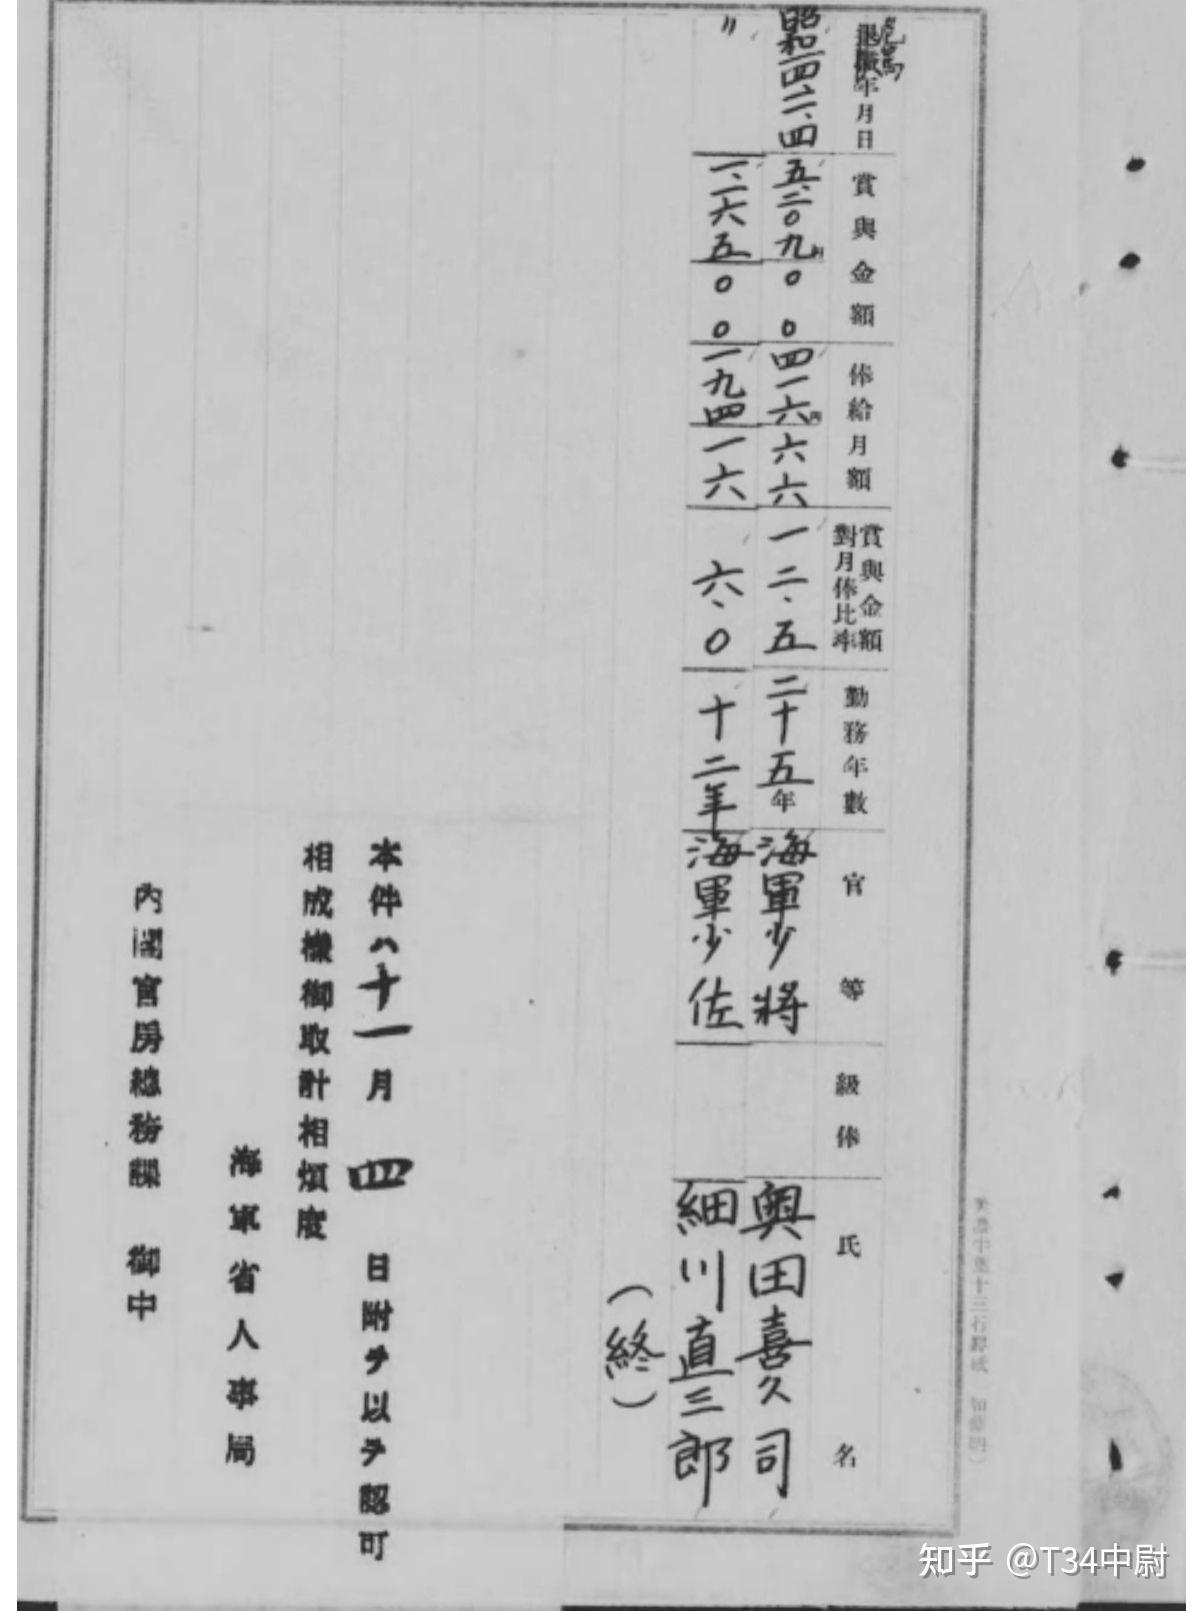 死亡
退職年月日
賞與金額
俸給月額
賞與金額
對月俸比率
勤務年數
官等
級俸
氏名
昭和一四、一一、四
五、二〇九円〇〇
四一六円六六
一二、五
二十五年
海軍少將
奥田喜久司
〃
一、一六五〇〇
一九四一六
六、〇
十二年
海軍少佐
細川直三郎
(終)
本件ハ十一月四日附ヲ以テ認可
相成樣御取計相煩度
海軍省人事局
內閣官房總務課 御中
知乎 @T34中尉